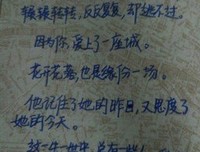 辗辗转转，反反复复，却逃不过。
因为你，爱上了一座城。
花开花落，也是缘份一场。
他记住了她的昨日，又忘废了
她的今天。